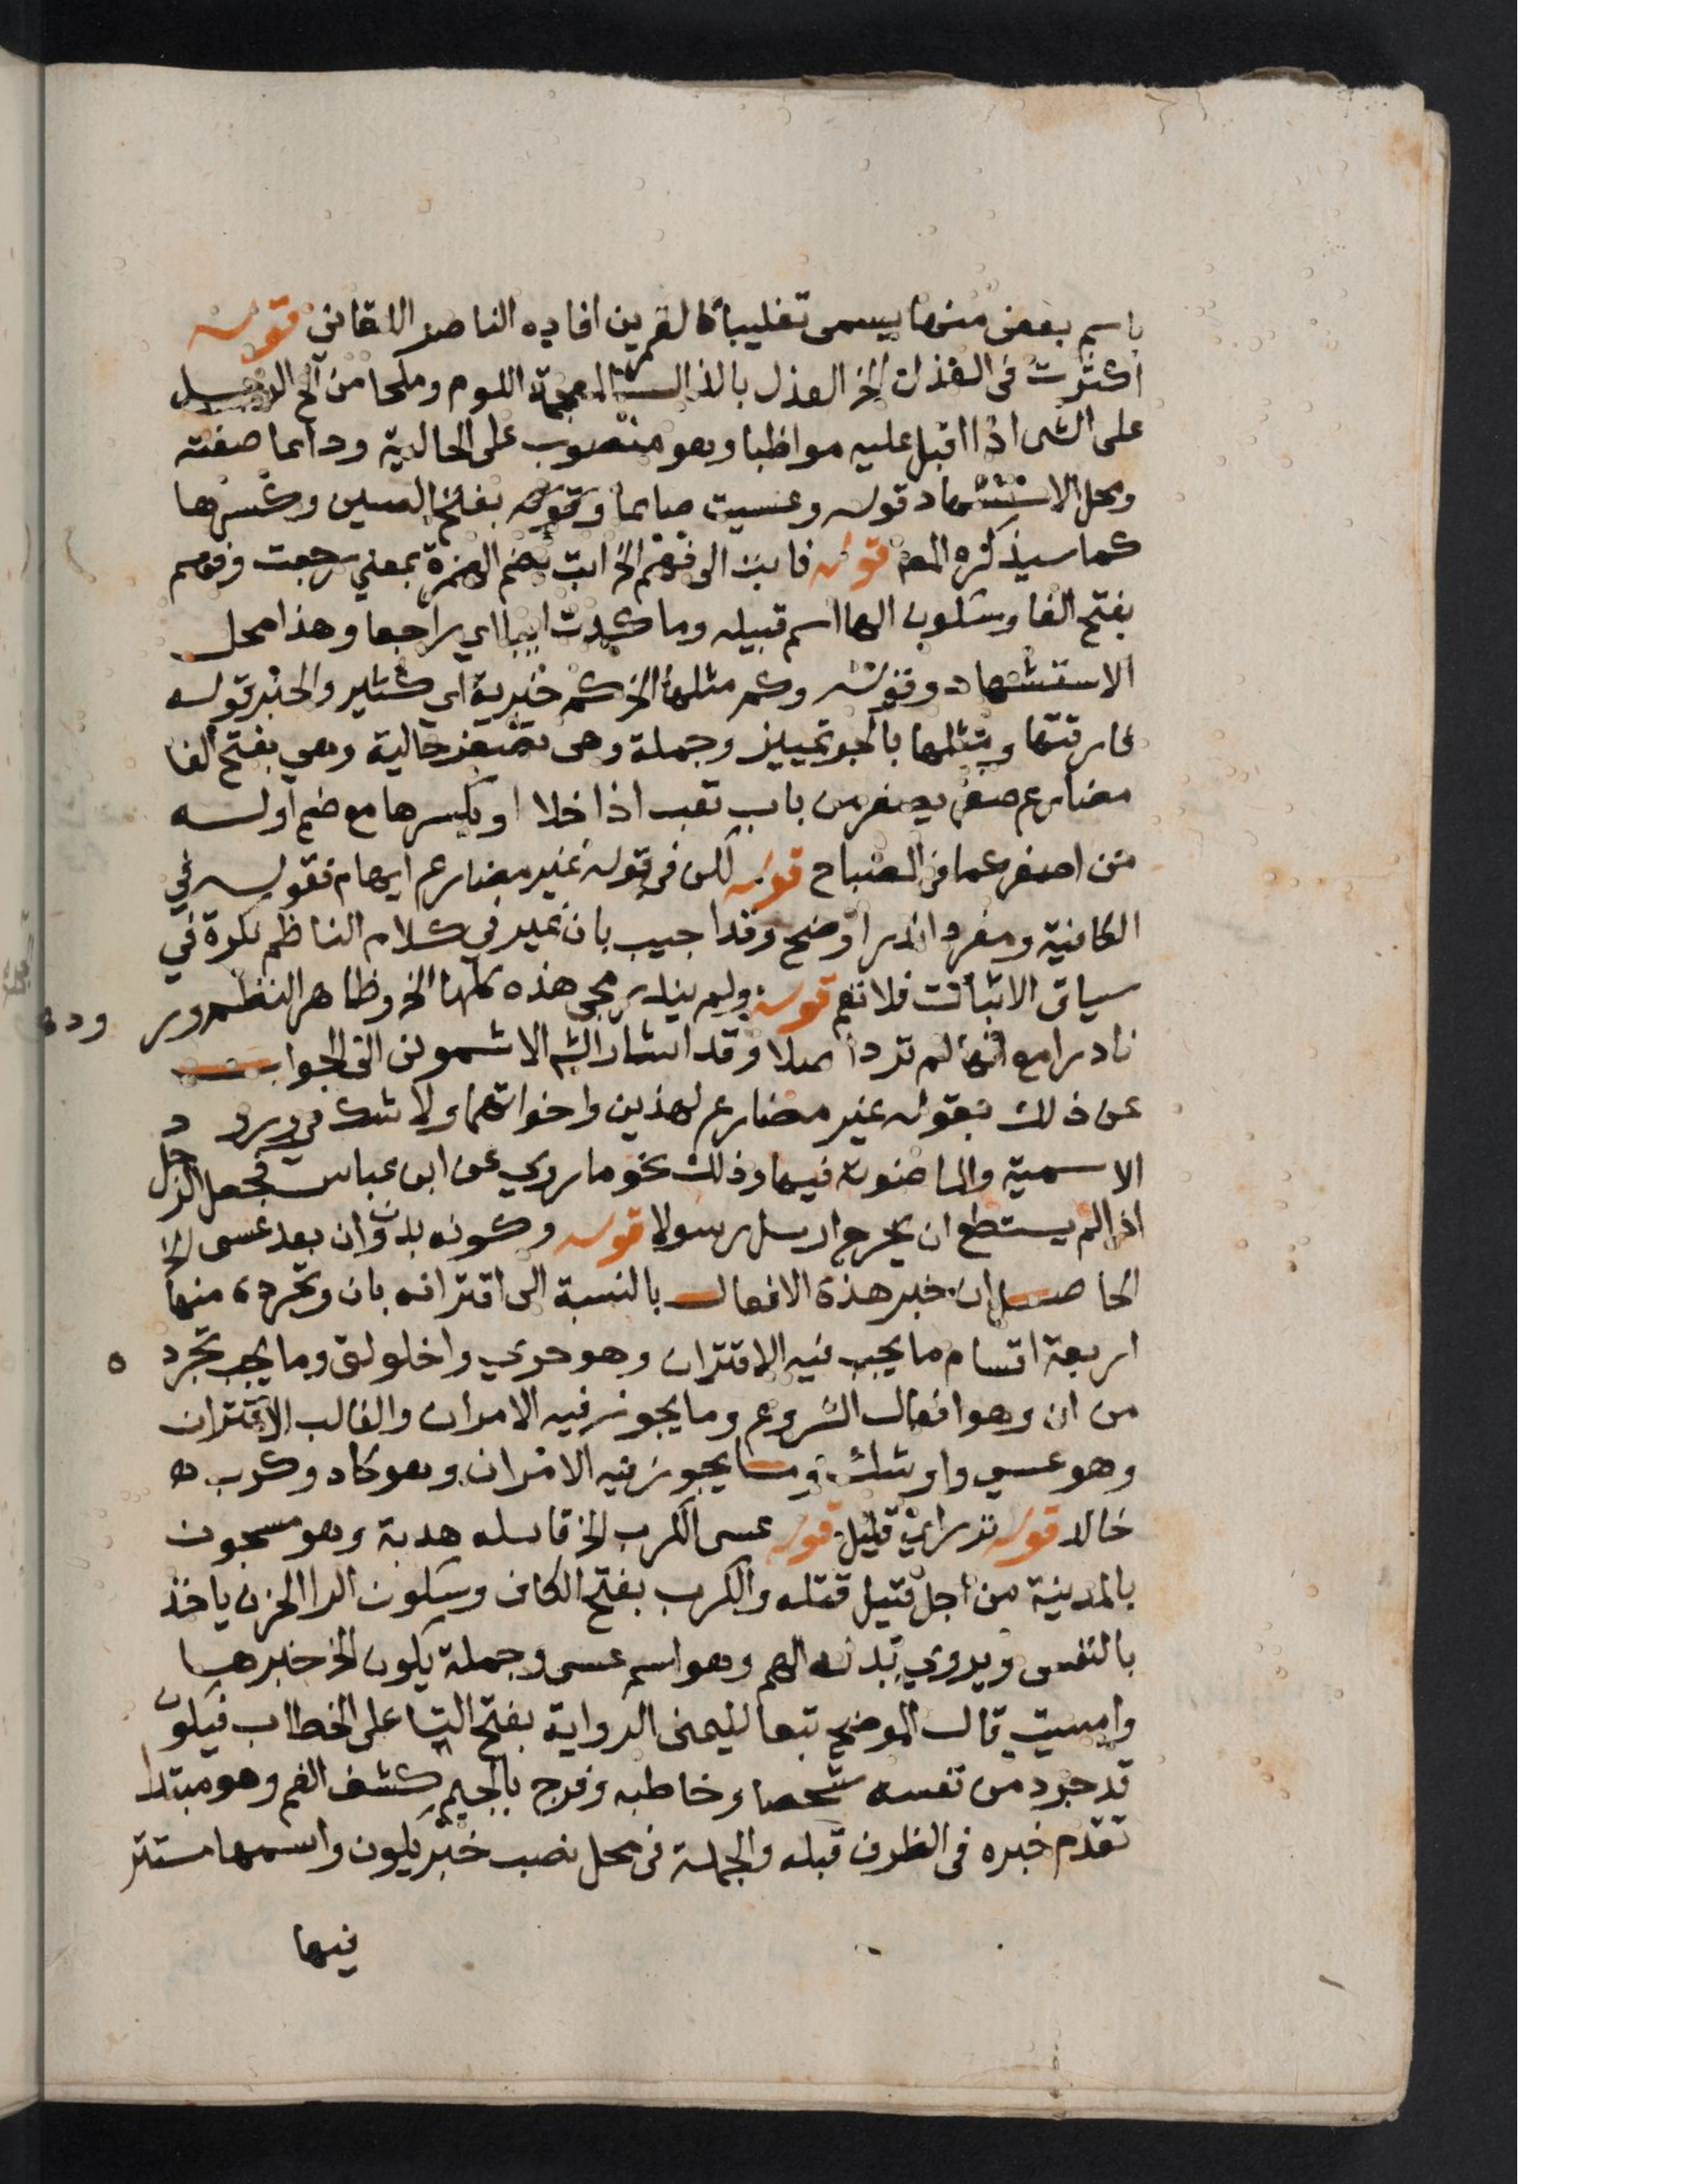 باسم بعض منها يسمى تغليبا كالقمرين افاده الناصر اللقاني قوله
اكثرت في العذل الخ العذل بالذال المعجمة اللوم وملحا من الح الرجل
على الشي اذا اقبل عليه مواظبا وهو منصوب على الحالية ودايما صفته
ومحل الاستشهاد قوله وعسيت صايما وقوله بفتح السين وكسرها
كما سيذكره المص قوله فابت الى فهم الخ ابت بضم الهمزة بمعني رجعت وفهم
بفتح الفا وسكون الها اسم قبيله وما كدت ايبا اي راجعا وهذا محل
الاستشهاد وقوله وكم مثلها الخ كم خبرية اي كثير والخبر قوله
فارقتها ومثلها بالجر تمييز وجملة وهي تصفر حالية وهي بفتح الفا
مضارع صفر يصفر من باب تعب اذا خلا او بكسرها مع ضم اوله
من اصفر كما في المصباح قوله لكن في قوله غير مضارع ايهام فقوله في
الكافية ومفردا ندر اوضح وقد اجيب بان غير في كلام الناظم نكرة في
سياق الاثبات فلا تعم قوله ولم يندر مجي هذه كلها الخ وظاهر النظم ورود
نادرا مع انها لم ترد اصلا وقد اشار الشم الاشموني الى الجواب
عن ذلك بقوله غير مضارع لهذين واخواتهما ولا شك في ورود
الاسمية والماضوية فيها وذلك نحو ما روي عن ابن عباس فجعل الرجل
اذا لم يستطع ان يخرج ارسل رسولا قوله وكونه بدون ان بعد عسى الخ
الحاصل ان خبر هذه الافعال بالنسبة الى اقترانه بان وتجرده منها
اربعة اقسام ما يجب فيه الاقتران وهو حري واخلولق وما يجب تجرده
من ان وهو افعال الشروع وما يجوز فيه الامران والغالب الاقتران
وهو عسى واوشك وما يجوز فيه الامران وهو كاد وكرب اه
خالد قوله نزر اي قليل قوله عسى الكرب الخ قايله هدبة وهو مسجون
بالمدينة من اجل قتيل قتله والكرب بفتح الكاف وسكون الرا الحزن ياخذ
بالنفس ويروي بدله الهم وهو اسم عسى وجملة يكون الخ خبرها
وامسيت قال الموضح تبعا لليمنى الرواية بفتح التا على الخطاب فيكون
قد جرد من نفسه شخصا وخاطبه وفرج بالجيم كشف الغم وهو مبتدا
تقدم خبره في الظرف قبله والجملة في محل نصب خبر يكون واسمها مستتر
فيها